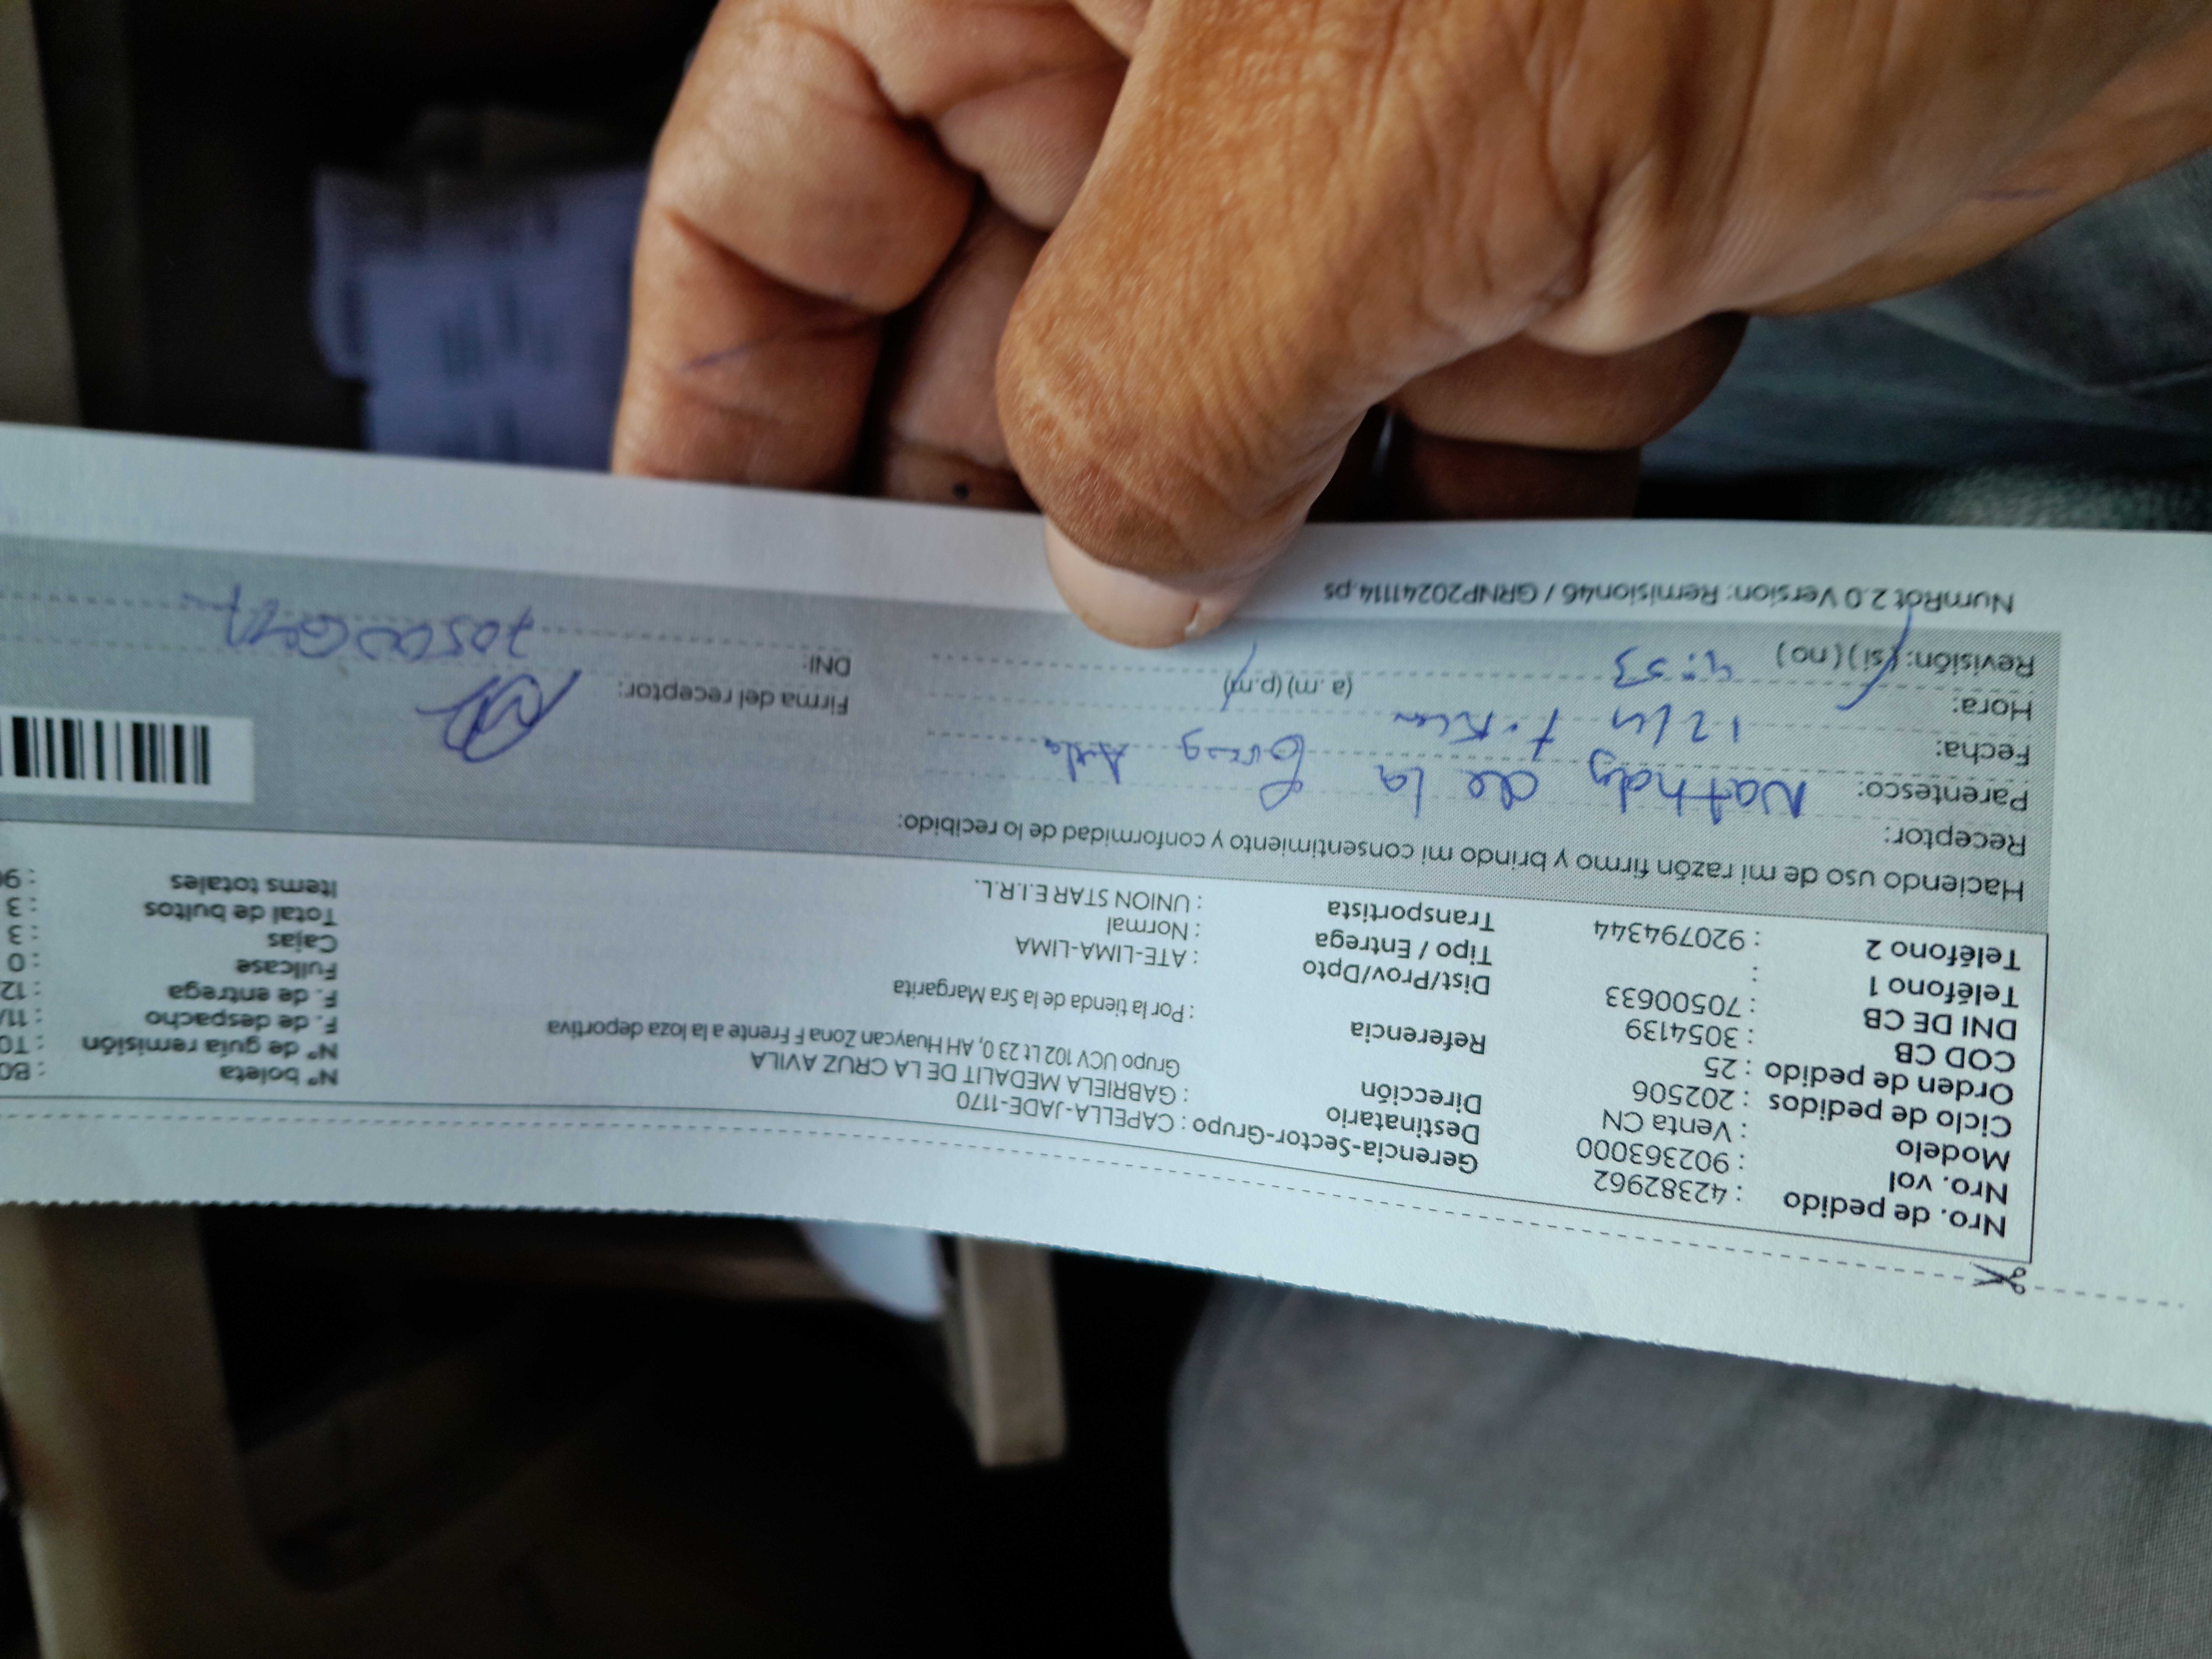 Nro. de pedido : 42382962
Nro. vol : 902363000
Modelo : Venta CN
Ciclo de pedidos : 202506
Orden de pedido : 25
COD CB : 3054139
DNI DE CB : 70500633
Teléfono 1 :
Teléfono 2 : 920794344
Gerencia-Sector-Grupo : CAPELLA-JADE-1170
Destinatario : GABRIELA MEDALIT DE LA CRUZ AVILA
Dirección Grupo UCV 102 Lt 23 0, AH Huaycan Zona F Frente a la loza deportiva
Referencia : Por la tienda de la Sra Margarita
Dist/Prov/Dpto : ATE-LIMA-LIMA
Tipo / Entrega : Normal
Transportista : UNION STAR E.I.R.L.
N° boleta : B0
N° de guía remisión : T0
F. de despacho : 11/
F. de entrega : 12
Fullcase : 0
Cajas : 3
Total de bultos : 3
Items totales : 9
Haciendo uso de mi razón firmo y brindo mi consentimiento y conformidad de lo recibido:
Receptor: Nathaly de la Avila
Parentesco:
Fecha: 12/
Hora: 4:53 (a.m) (p.m)
Revisión: (si) (no)
Firma del receptor:
DNI:
NumRot 2.0 Version: Remision46 / GRNP20241114.ps